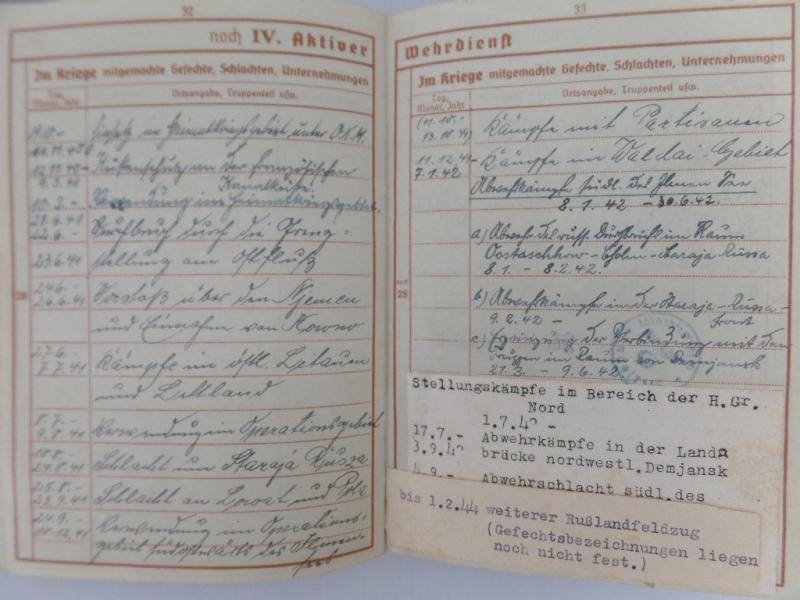 32
noch IV. Aktiver
Im Kriege mitgemachte Gefechte, Schlachten, Unternehmungen
Tag, Monat, Jahr
Ortsangabe, Truppenteil usw.
Einsatz im Heimatkriegsgebiet unter O.K.H.
11.11.40
12.11.40 Küstenschutz an der französischen
9.3.41 Kanalküste.
10.3.- Verwendung im Heimatkriegsgebiet.
21.6.41
22.6.- Durchbruch durch die Grenz-
23.6.41 stellung am Ostfluß
24.6.- Vorstoß über den Njemen
26.6.41 und Einnahme von Kowno
27.6.- Kämpfe im östl. Litauen
7.7.41 und Lettland
8.7.- Verwendung im Operationsgebiet
9.8.41
10.8.- Schlacht um Staraja Russa
24.8.41
25.8.- Schlacht an Lowat und Pola
23.9.41
24.9.- Verwendung im Operations-
10.12.41 gebiet südostwärts des Ilmen-
sees
28
33
Wehrdienst
Im Kriege mitgemachte Gefechte, Schlachten, Unternehmungen
Tag, Monat, Jahr
Ortsangabe, Truppenteil usw.
(11.10.- Kämpfe mit Partisanen
13.10.41)
11.12.41- Kämpfe im Waldai-Gebiet
7.1.42
Abwehrkämpfe südl. des Ilmen See
8.1.42 - 30.6.42.
a) Abwehr des russ. Durchbruchs im Raum
Ostaschkow-Cholm-Staraja Russa
8.1. - 8.2.42.
b) Abwehrkämpfe in der Staraja-Russa-
9.2.42 - Front
c) Erzwingung der Verbindung mit den
Truppen im Raum von Demjansk
21.3. - 9.6.42
28
Stellungskämpfe im Bereich der H.Gr.
Nord
1.7.42 -
17.7.- Abwehrkämpfe in der Landn
3.9.42 brücke nordwestl.Demjansk
4.9.- Abwehrschlacht südl.des
bis 1.2.44 weiterer Rußlandfeldzug
(Gefechtsbezeichnungen liegen
noch nicht fest.)